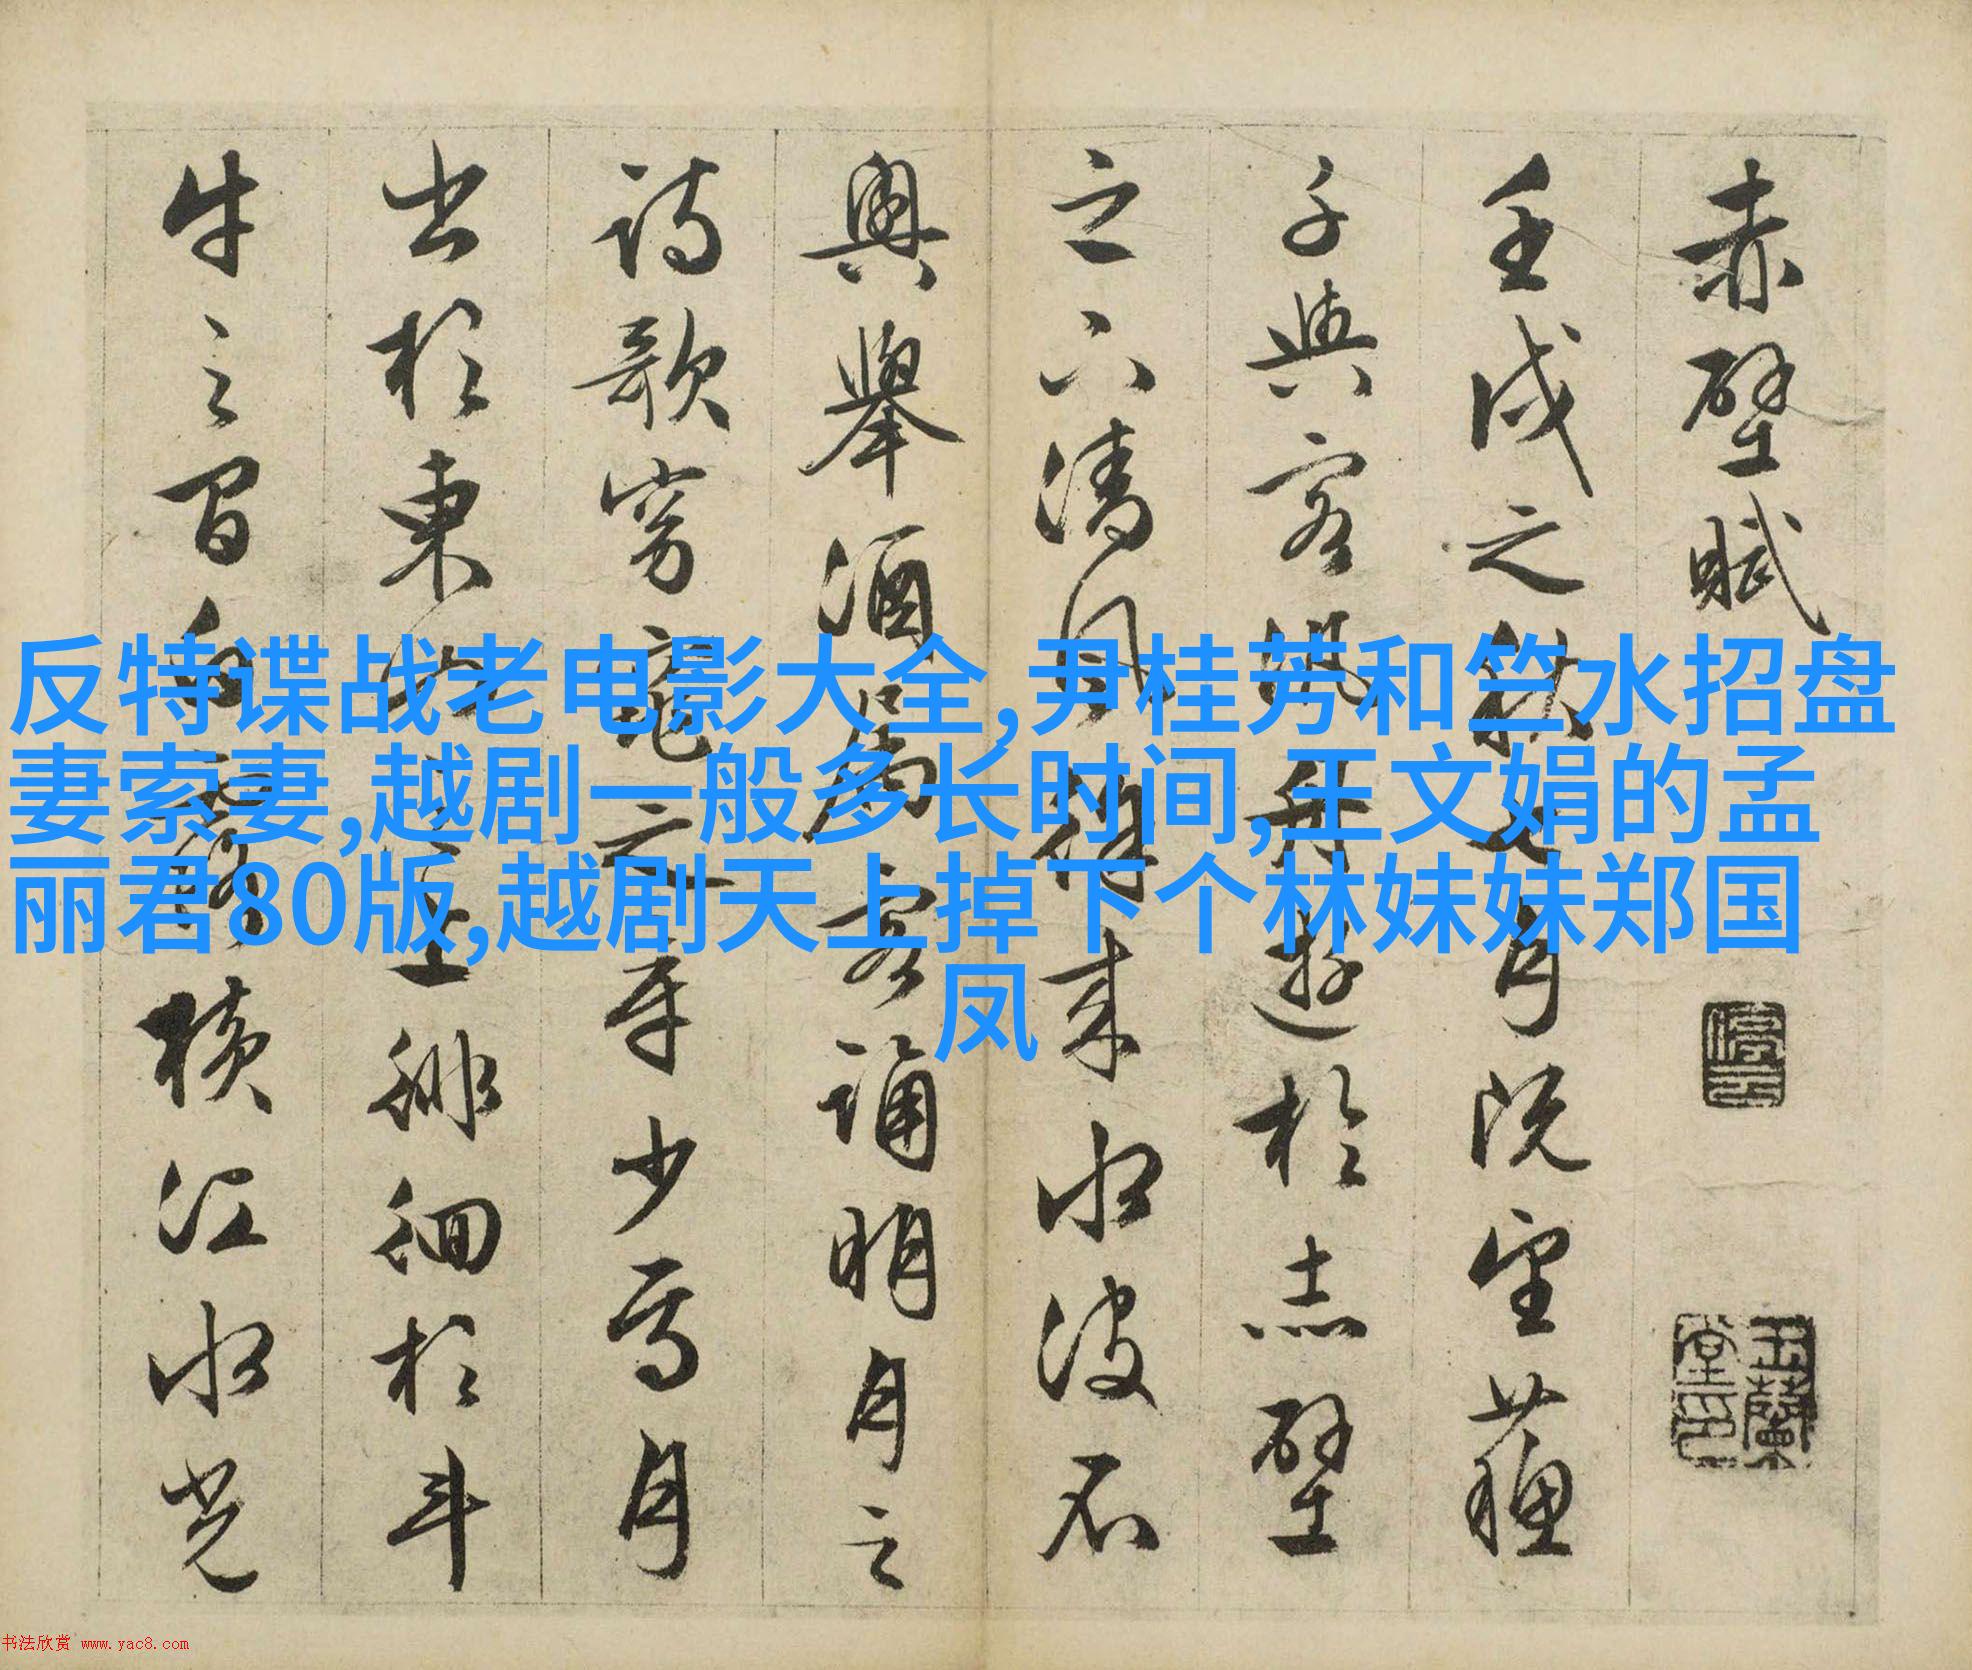 赤壁賦
壬戌之秋七月既望蘓
子與客汎舟遊於赤壁
之下清風徐來水波不
興舉酒属客誦明月之
詩歌窈窕之章少焉月
出於東山之上徘徊於斗
牛之間白露横江水光
停雲
玉蘭堂印
反特谍战老电影大全,尹桂芳和竺水招盘
妻索妻,越剧一般多长时间,王文娟的孟
丽君80版,越剧天上掉下个林妹妹郑国
凤
书法欣赏 www.yac8.com